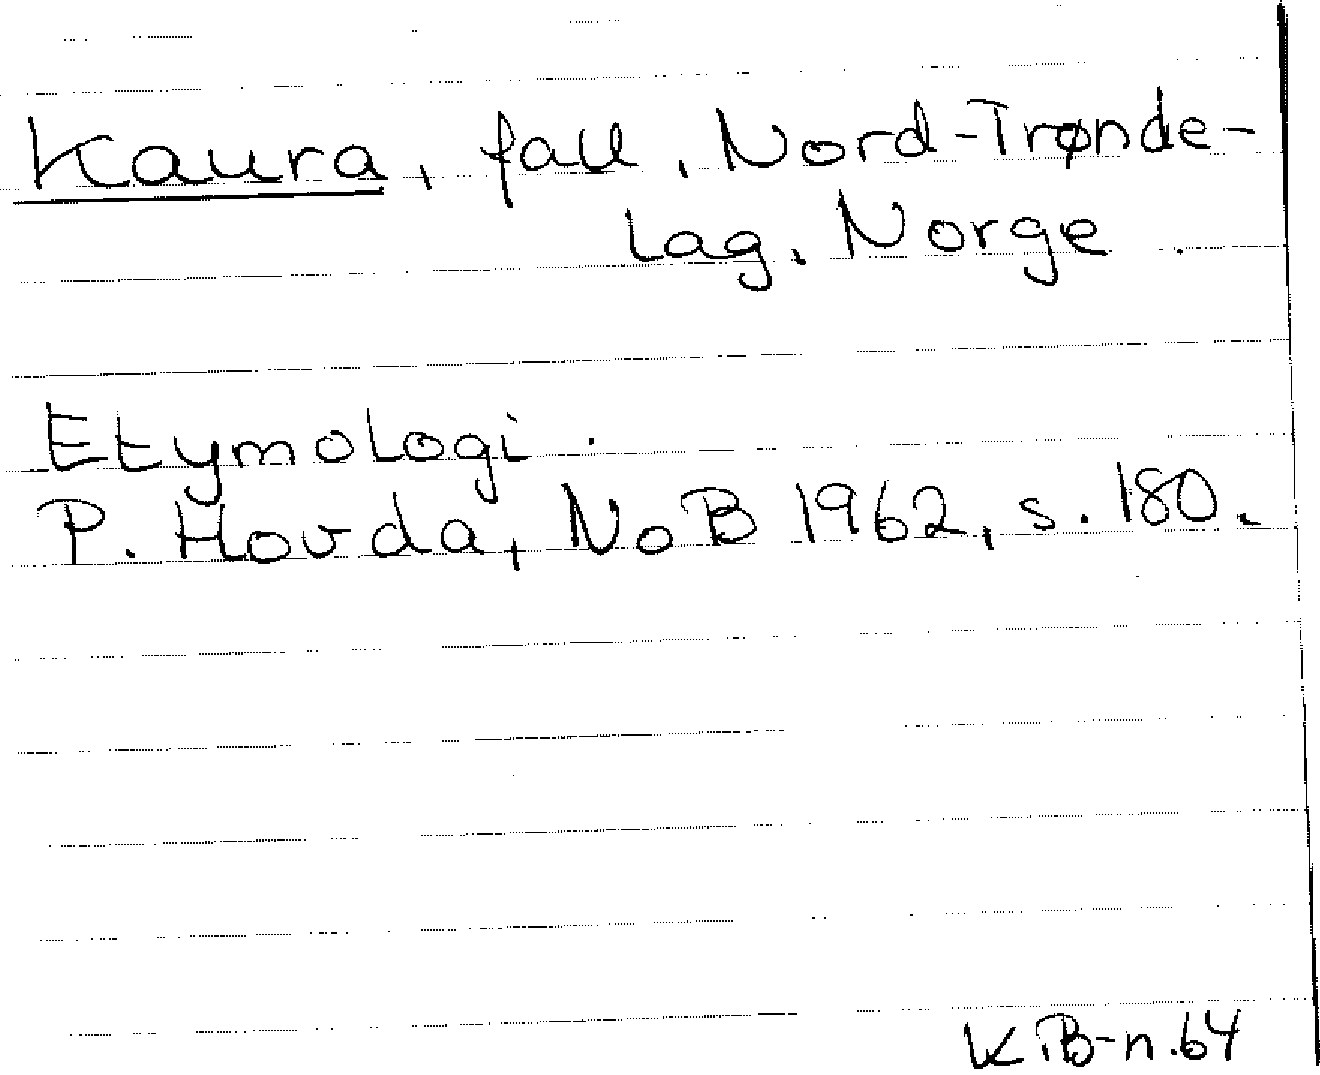 Kaura, fall, Nord-Trønde-
lag, Norge.
Etymologi.
P. Hovda, NoB 1962, s. 180.
K.B-n.64